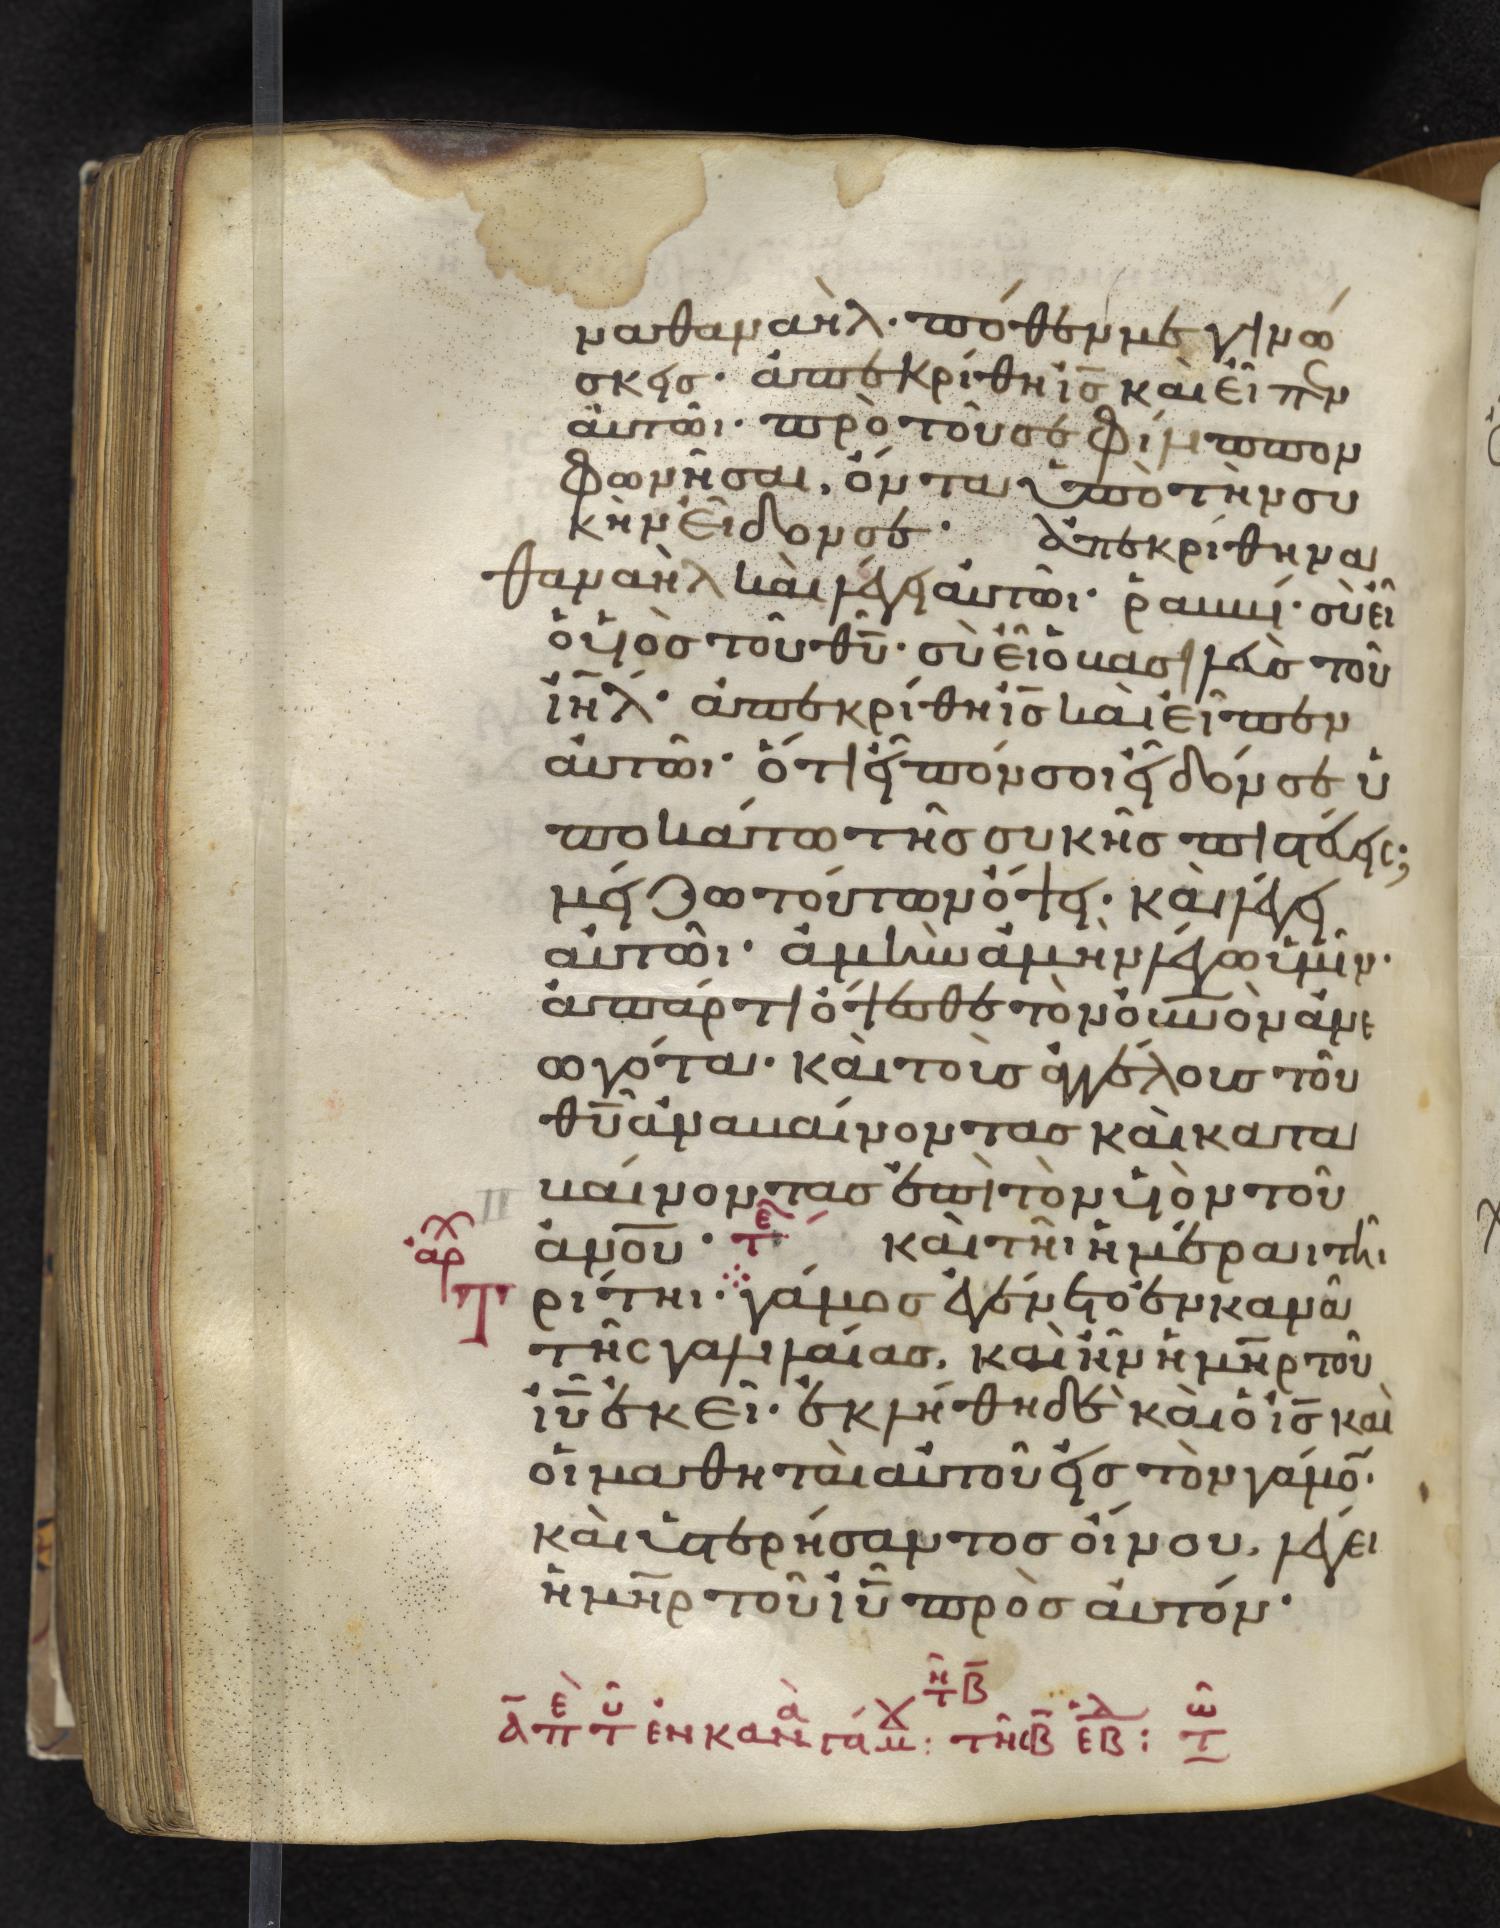 ναθαναὴλ· πόθεν με γινώ
σκεις· ἀπεκρίθη ἰς̅ καὶ εἶπεν
αὐτῶι· πρὸ τοῦ σε φίλιππον
φωνῆσαι, ὄντα ὑπὸ τὴν συ
κὴν εἶδον σε· ἀπεκρίθη να
θαναὴλ καὶ λέγει αὐτῶι· ῥαββί· σὺ εἶ
ὁ υἱὸς τοῦ θυ̅· σὺ εἶ ὁ βασιλεὺς τοῦ
ἰη̅λ· ἀπεκρίθη ἰς̅ καὶ εἶπεν
αὐτῶι· ὅτι εἶπόν σοι εἶδόν σε ὑ
ποκάτω τῆς συκῆς πιστεύεις;
μείζω τούτων ὄψει· καὶ λέγει
αὐτῶι· ἀμὴν ἀμὴν λέγω ὑμῖν·
ἀπάρτι ὄψεσθε τὸν ου̅νὸν ἀνε
ωγότα· καὶ τοὺς ἀγγέλους τοῦ
θυ̅ ἀναβαίνοντας καὶ κατα
βαίνοντας ἐπὶ τὸν υἱὸν τοῦ
ἀνου̅· τε καὶ τῆι ἡμέραι τῆι
τρίτηι· γάμος ἐγένετο ἐν κανᾶ
τῆς γαλιλαίας, καὶ ἦν ἡ μη̅ρ τοῦ
ἰυ̅ ἐκεῖ· ἐκλήθη δὲ καὶ ὁ ἰς̅ καὶ
οἱ μαθηταὶ αὐτοῦ εἰς τὸν γάμο̅·
καὶ ὑστερήσαντος οἴνου, λέγει
ἡ μη̅ρ τοῦ ἰυ̅ πρὸς αὐτόν·